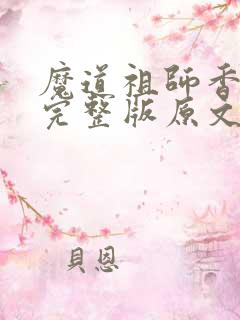 魔道祖師香
完整版原文
貝恩